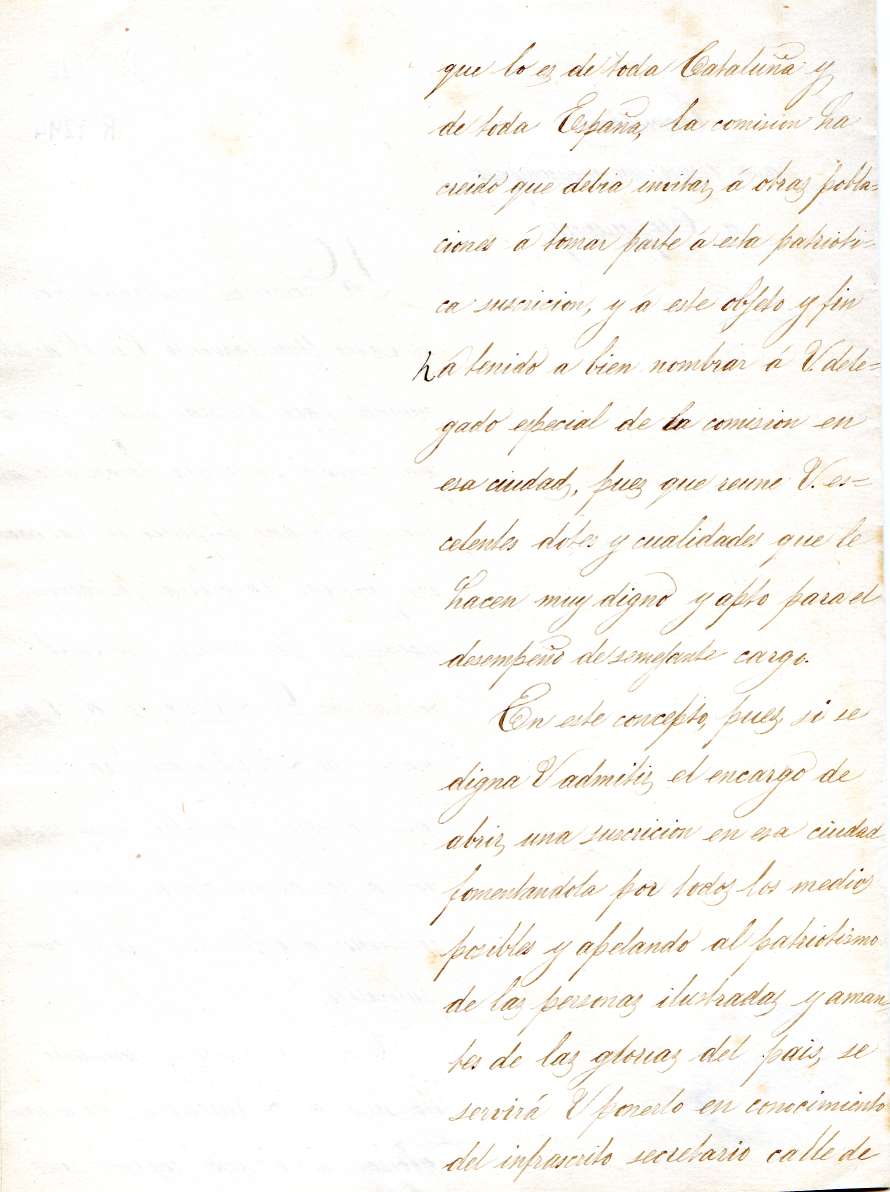 que lo es de toda Cataluña y
de toda España, la comision ha
creido que debia invitar, á otras pobla=
ciones á tomar parte á esta patrioti=
ca suscricion, y á este objeto y fin
ha tenido a bien nombrar á V. dele=
gado especial de la comision en
esa ciudad, pues que reune V. es=
celentes dotes y cualidades que le
hacen muy digno y apto para el
desempeño de semejante cargo.
En este concepto, pues, si se
digna V admitir, el encargo de
abrir, una suscricion en esa ciudad
fomentandola por todos los medios
posibles y apelando al patriotismo
de las personas ilustradas y aman=
tes de las glorias del pais, se
servirá V ponerlo en conocimiento
del infrascrito secretario calle de